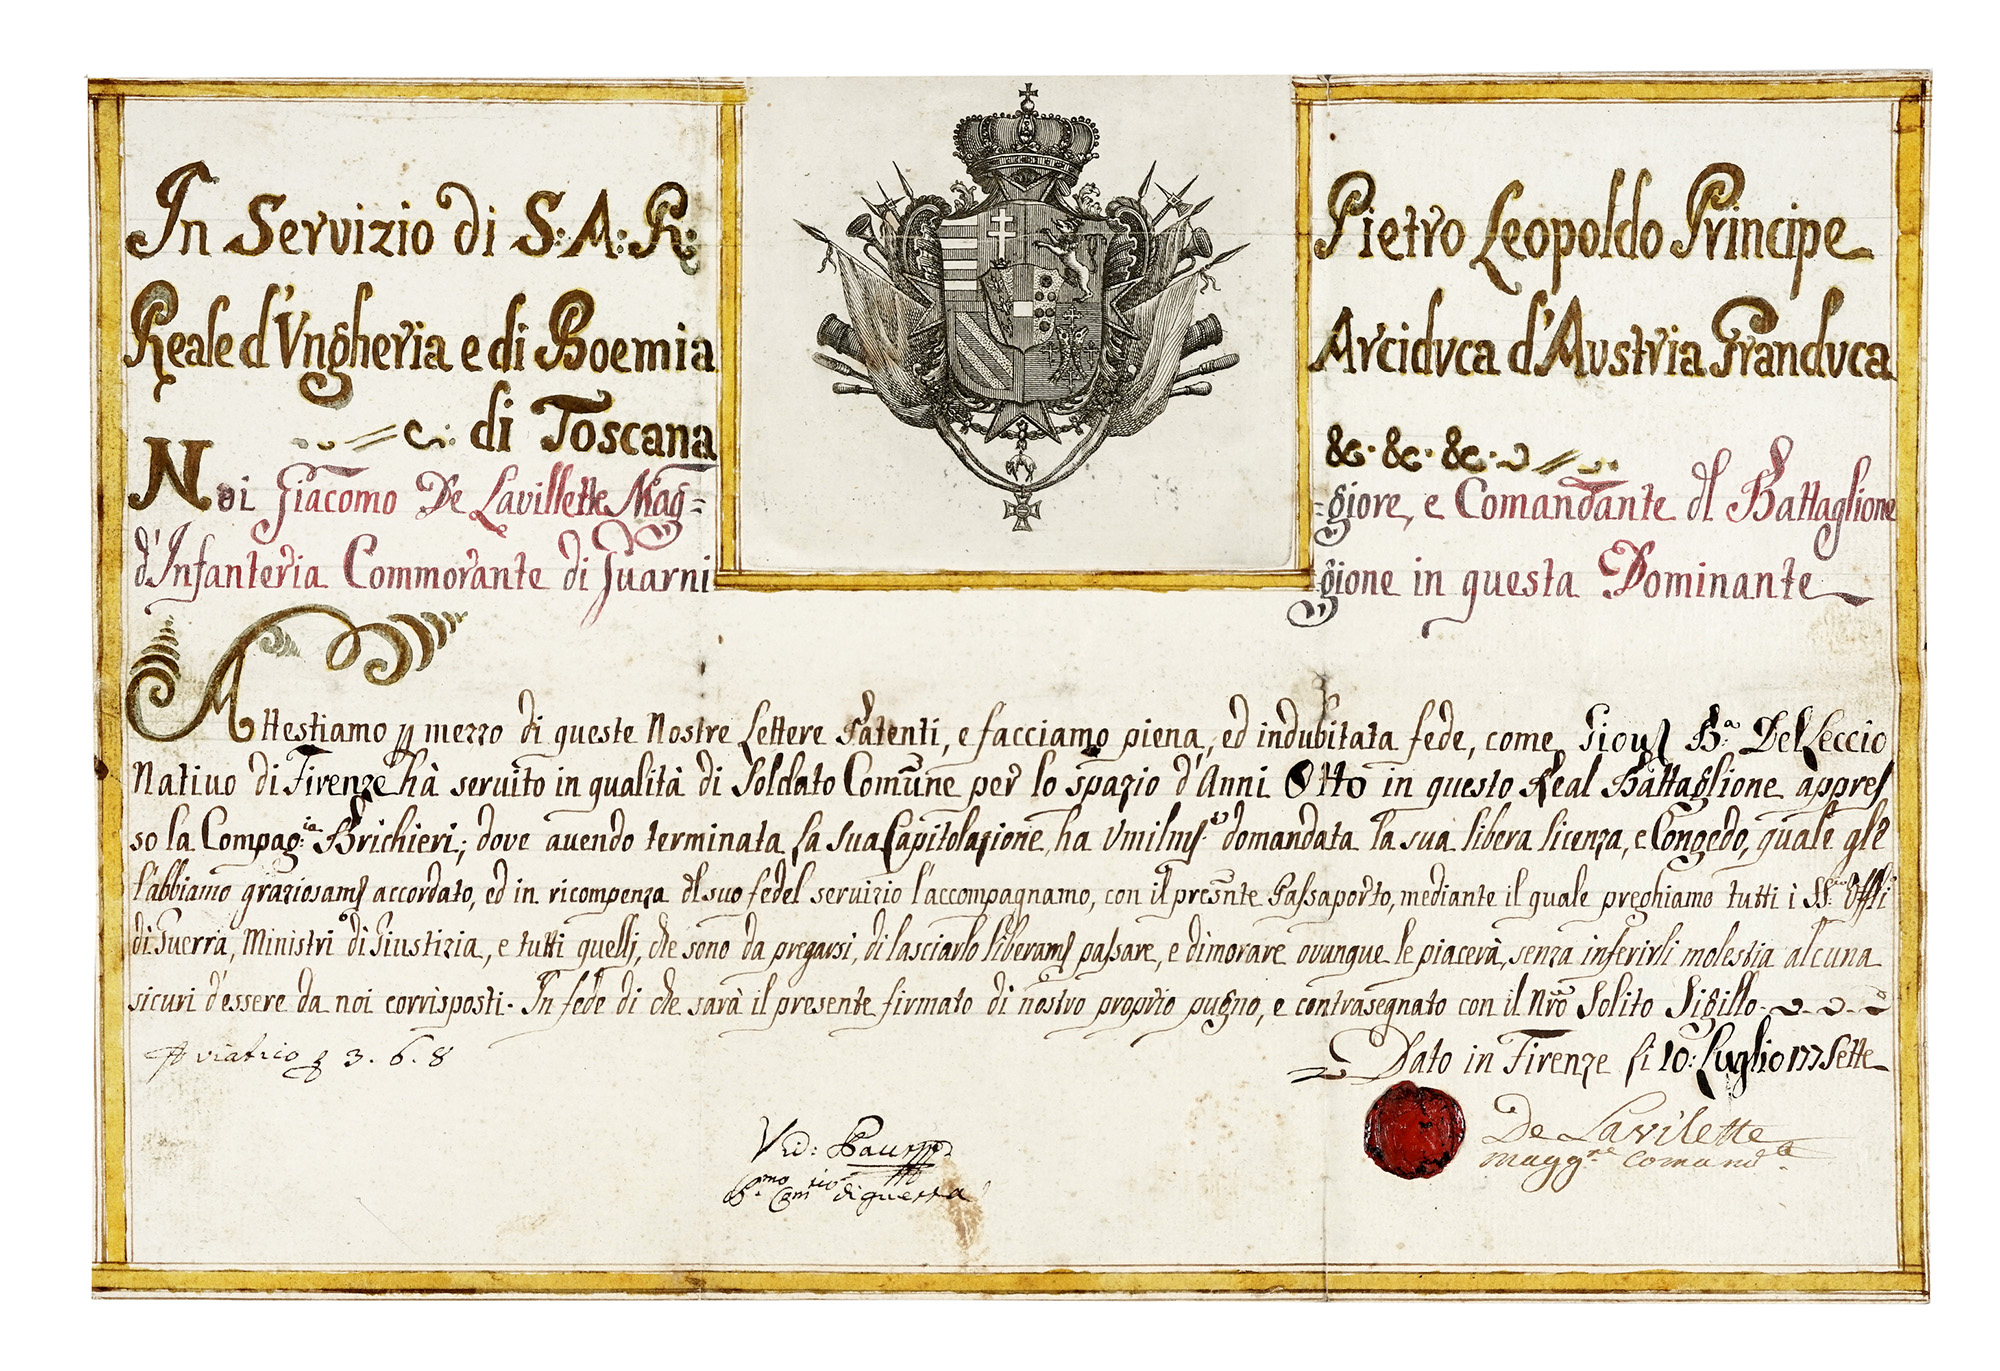 In Servizio di S: A: R: Pietro Leopoldo Principe
Reale d'Ungheria e di Boemia Arciduca d'Austria Granduca
di Toscana &c. &c. &c.
Noi Giacomo De Lavillette Mag= =giore, e Comandante dl Battaglione
d'Infanteria Commorante di Guarni =gione in questa Dominante
Attestiamo p mezzo di queste Nostre Lettere Patenti, e facciamo piena, ed indubitata fede, come Gio: Ba: Del Leccio
Nativo di Firenze hà servito in qualità di Soldato Comune per lo spazio d'Anni Otto in questo Real Battaglione appres
so la Compag:ia Brichieri; dove avendo terminata la sua Capitolazione, ha Umilms:e domandata la sua libera licenza, e Congedo, quale gle
l'abbiamo graziosams accordato, ed in ricompenza dl suo fedel servizio l'accompagnamo, con il presnte Passaporto, mediante il quale preghiamo tutti i SS:ri Uffli
di Guerra, Ministri di Giustizia, e tutti quelli, che sono da pregarsi, di lasciarlo liberams passare, e dimorare ovunque le piacerà, senza inferirli molestia alcuna
sicuri d'essere da noi corrisposti. In fede di che sarà il presente firmato di nostro proprio pugno, e contrasegnato con il Nro Solito Sigillo
viatico 3. 6. 8
Dato in Firenze li 10: Luglio 177Sette
De Lavilette
Magg:re Comand:te
Vid:
di guerra